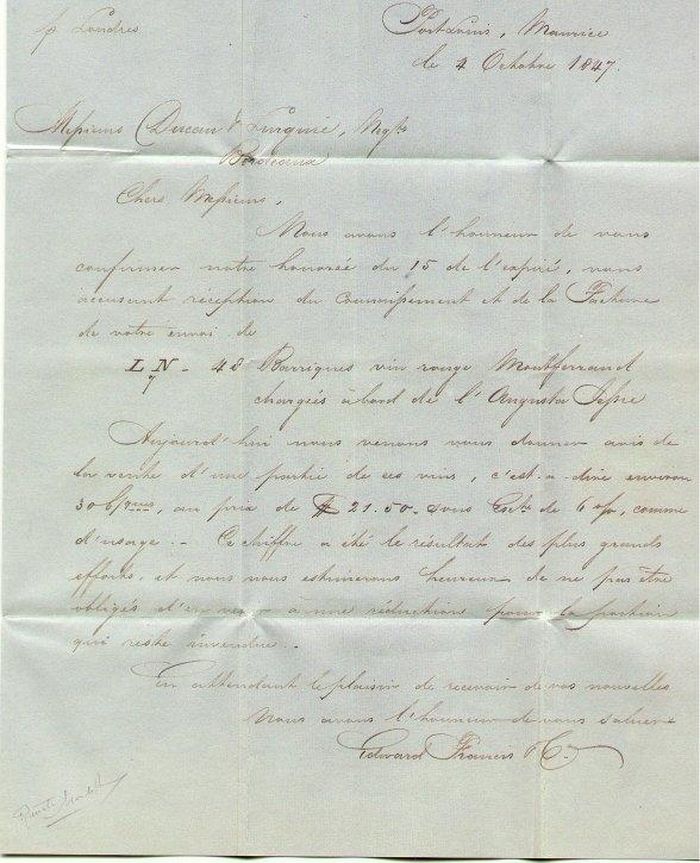 p Londres
Port Louis, Maurice
le 4 Octobre 1847.
Messieurs Ducau & Lurguie, Negts
Bordeaux
Chers Messieurs,
Nous avons l'honneur de vous
confirmer notre honorée du 15 de l'expiré, vous
accusant réception du Connaissement et de la Facture
de votre envoi de
L N - 48 Barriques vin rouge Montferrand
chargés à bord de l'Augusta
Aujourd'hui nous venons vous donner avis de
la vente d'une partie de ces vins, c'est-a-dire environ
30 b/ques, au prix de $ 21.50 sous Escte de 6 o/o, comme
d'usage. - Ce chiffre a été le résultat des plus grands
efforts, et nous nous estimerons heureux de ne pas être
obligés d'en venir à une réduction pour la portion
qui reste invendue. -
En attendant le plaisir de recevoir de vos nouvelles
Nous avons l'honneur de vous saluer
Edward Francis & Co